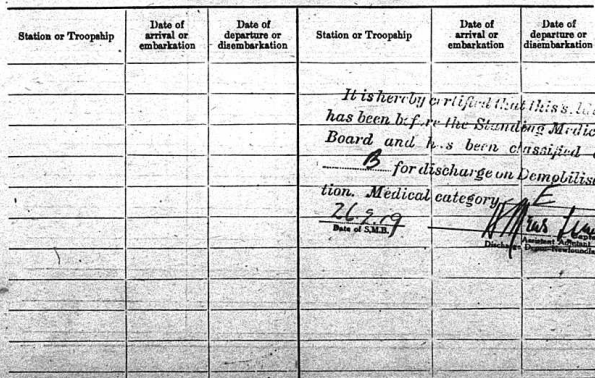 Station or Troopship
Date of arrival or embarkation
Date of departure or disembarkation
Station or Troopship
Date of arrival or embarkation
Date of departure or disembarkation
It is hereby certified that this
has been before the Standing Medic
Board and has been classified
B for discharge on Demobilis
tion. Medical category E
26.9.19
Date of S.M.B.
Capt
Assistant Adjutant
Discharge Depot Newfoundla